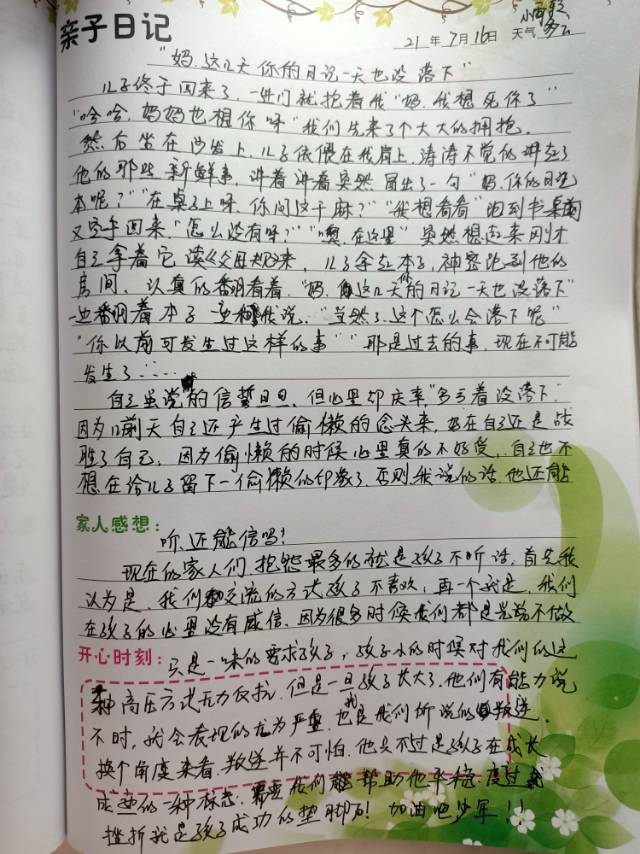 亲子日记
21年7月16日 天气 小雨转多云
"妈.这几天你的日记一天也没落下"
儿子终于回来了.一进门就抱着我"妈.我想死你了"
"哈哈.妈妈也想你呀"我们先来了个大大的拥抱.
然后坐在沙发上.儿子依偎在我肩上.涛涛不觉的讲在了
他的那些新鲜事.讲着讲着突然冒出了一句"妈.你的日记
本呢?""在桌子上呀.你问这干麻?""我想看看"跑到书桌前
又空手回来."怎么没有呀?""噢.在这里"突然想起来刚才
自己拿着它读《父母规》来.儿子拿在本子.神密地到他的
房间.认真的翻看着."妈.你这几天的日记一天也没落下"
一边翻看着本子一边和我说."当然了.这个怎么会落下呢"
"你以前可发生过这样的事""那是过去的事.现在不可能
发生了……
自己虽说的信誓旦旦.但心里却庆幸"多亏着没落下"
因为前天自己还产生过偷懒的念头来.好在自己还是战
胜了自己.因为偷懒的时候心里真的不好受.自己也不
想在给儿子留下一个偷懒的印象了.否则我说的话.他还能
家人感想:
听.还能信吗?
现在的家人们.抱怨最多的就是孩子不听话.首先我
认为是.我们交流的方式孩子不喜欢.再一个就是.我们
在孩子的心里没有威信.因为很多时候我们都是光说不做
开心时刻:
只是一味的要求孩子.孩子小的时候对我们的这
种高压方式无力反抗.但是一旦孩子长大了.他们有能力说
不时.就会表现的尤为严重.也就是我们所说的叛逆.
换个角度来看.叛逆并不可怕.他只不过是孩子在成长
成熟的一种标志.需要我们能帮助他平稳度过
挫折就是孩子成功的垫脚石!加油吧少年!!